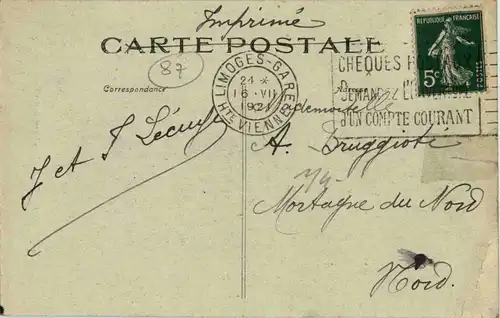 Imprimé
CARTE POSTALE
87
Correspondance
Adresse
LIMOGES-GARE
24 *
16-VII
1921
Hte VIENNE
CHEQUES POSTAUX
DEMANDEZ L'OUVERTURE
d'UN COMPTE COURANT
REPUBLIQUE FRANÇAISE
5c
POSTES
Mademoiselle
A.
J et J Lécuyer
Mortagne du Nord
Nord.